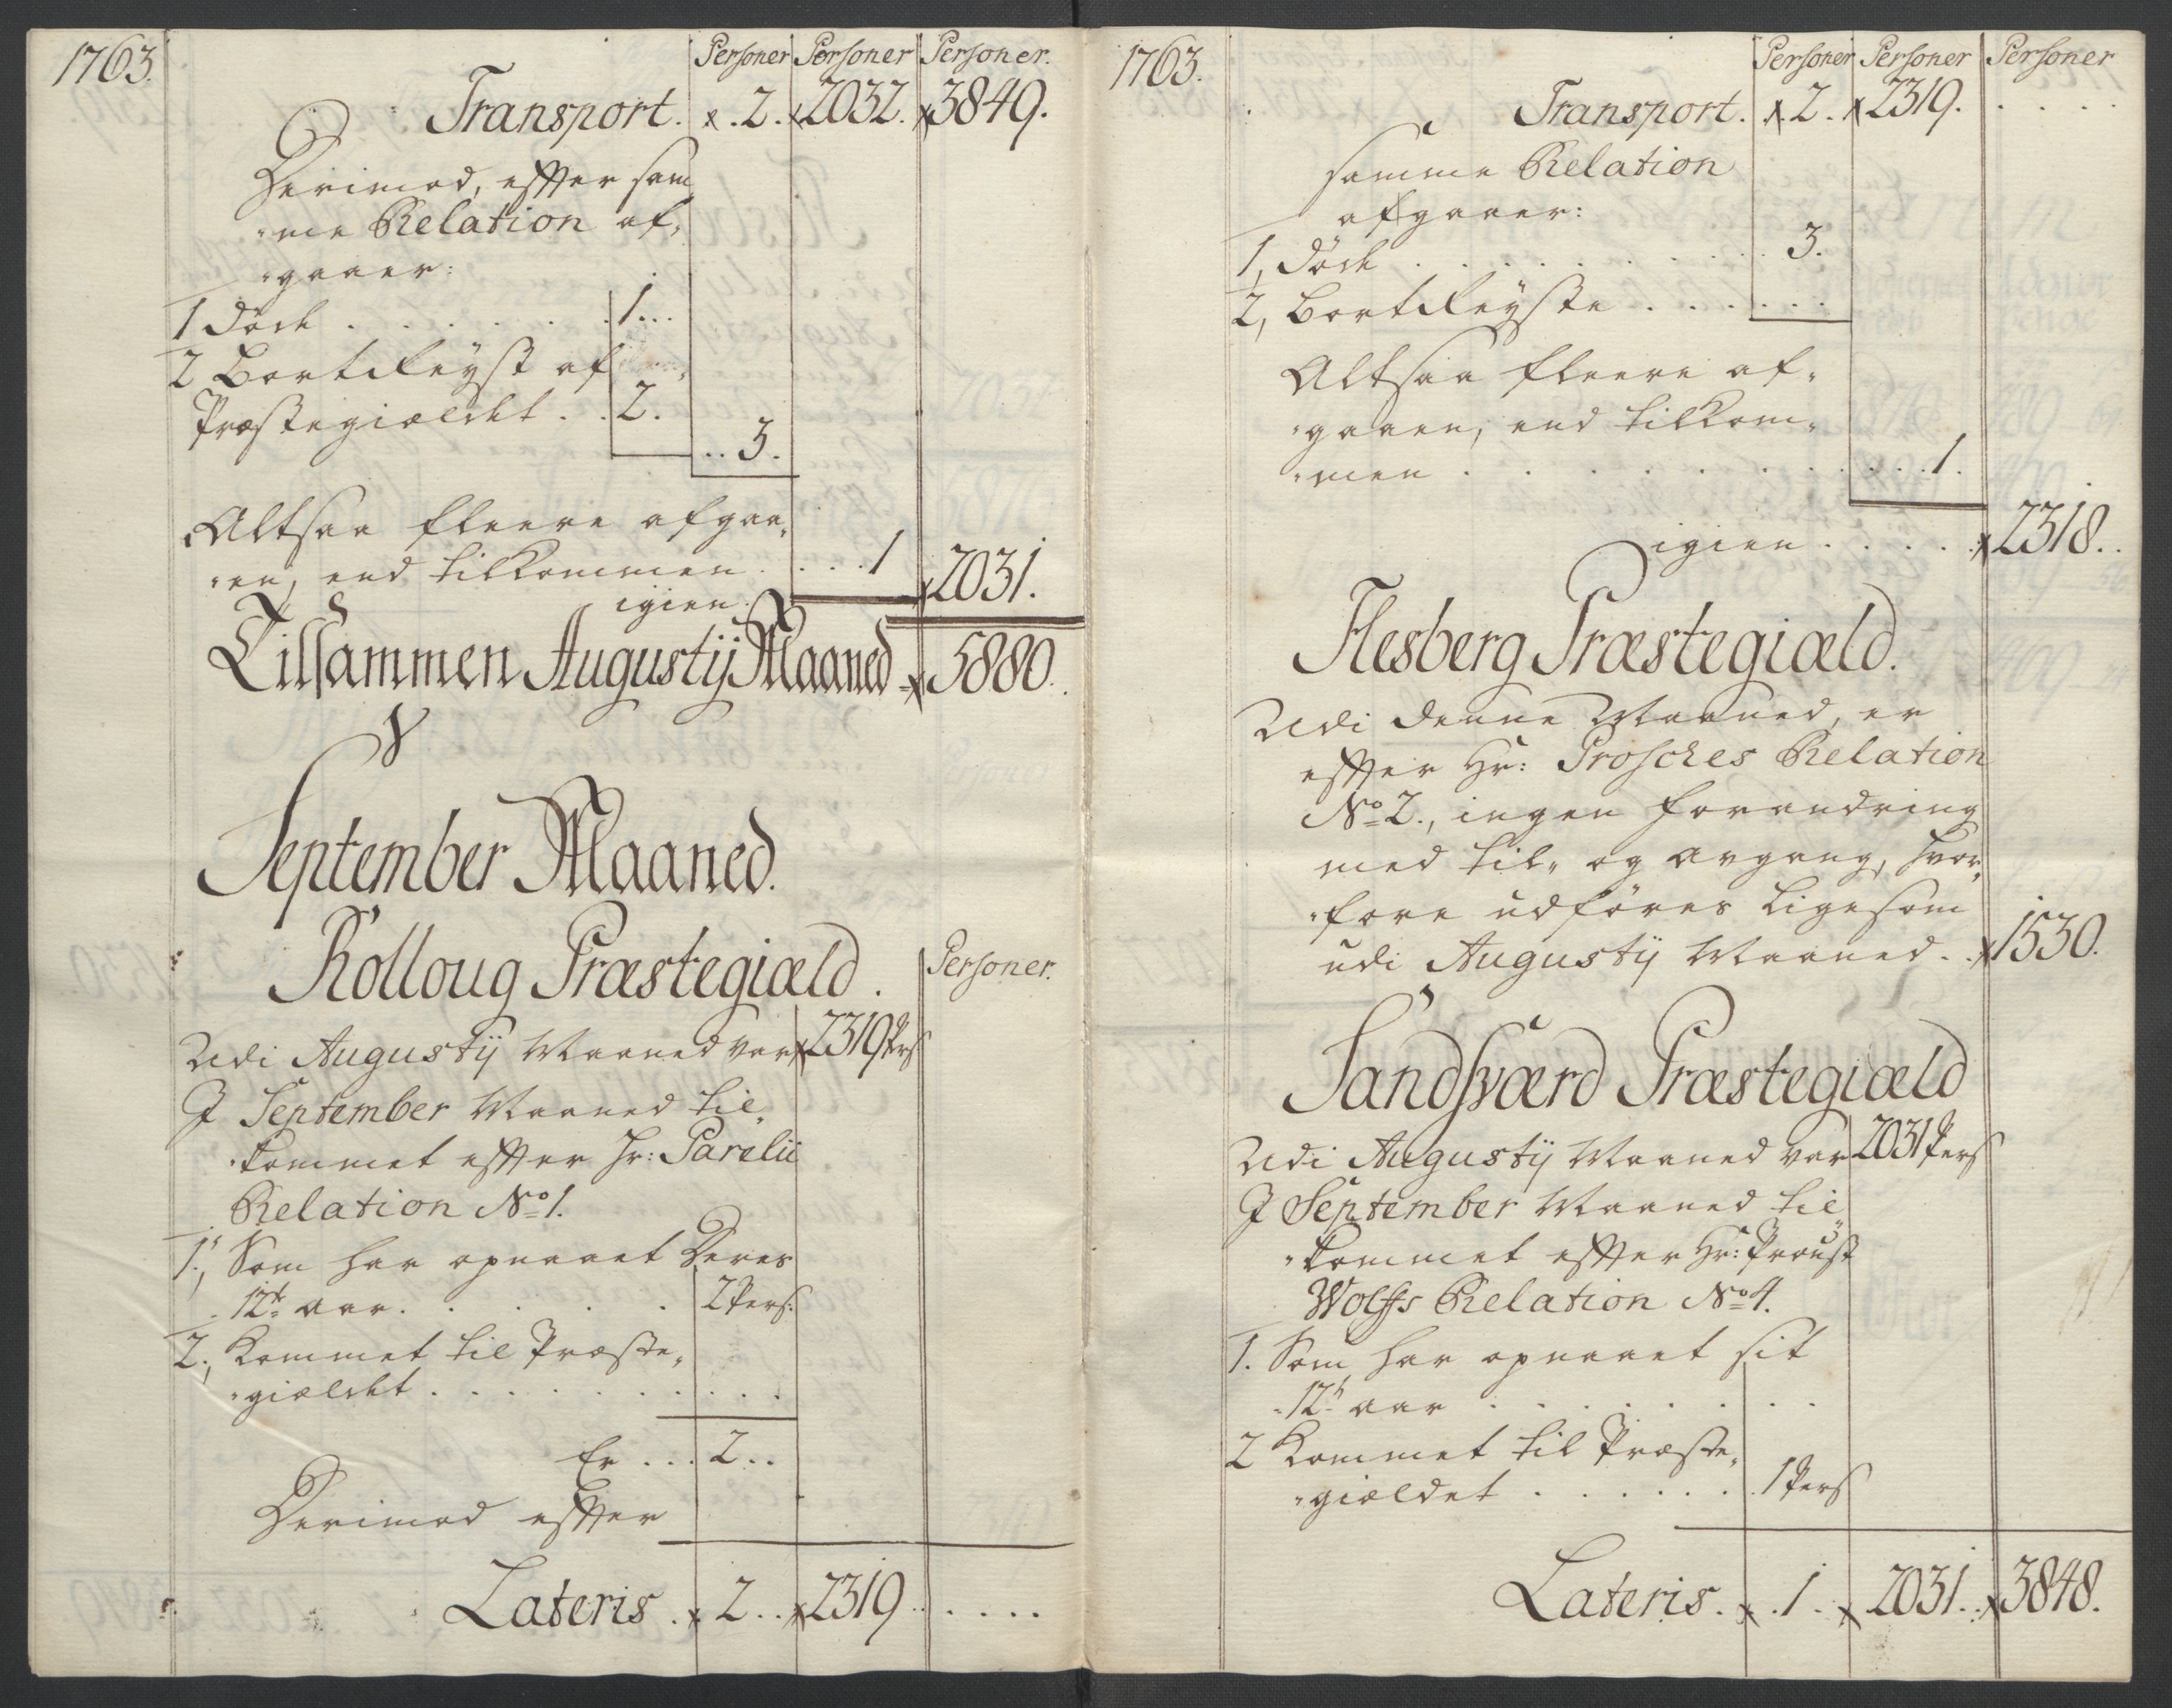 1763.
Personer Personer Personer.
Transport. x. 2. x 2032. x 3849.
Derimod, efter sam„
„me Relation af„
„gaaer:
1 Döde . . . . . . 1...
2 Bortreyst af
Præstegiældet . . 2.
.. 3.
Altsaa fleere afgaa„
„en, end tilkommen . . . . 1
igien. x 2031.
Tilsammen Augustij Maaned x 5880.
September Maaned.
Rolloug Præstegiæld. Personer.
Udi Augustij Maaned var x 2319 Prs
J September Maaned til„
„kommet efter Hr: Parelii
Relation No 1.
1., Som har opnaaet Deres
12te aar. . . . . 2 Pers:
2., Kommet til Præste„
„giældet . . . . . . . . . .
Er . . . 2 . .
Derimod efter
Lateris . x 2 . . x 2319 . . . . . .
1763.
Personer Personer Personer
Transport. x. 2. x 2319. . . . .
samme Relation
afgaaer:
1, Döde . . . . . . . . 3.
2, Bortreyste . . . . . .
Altsaa fleere af„
„gaaen, end tilkom„
„men . . . . . . . . . . 1.
igien . . . . x 2318. .
Flesberg Præstegiæld.
Udi denne Maaned, er
efter Hr: Prosches Relation
No 2., ingen forandring
med til„ og avgang, hvor„
„fore udföres ligesom
udi Augustij Maaned . . x 1530.
Sandsværd Præstegiæld
Udi Augustij Maaned var 2031 Pers
J September Maaned til„
„kommet efter Hr: Proust
Wolffs Relation No 4.
1. Som har opnaaet sit
12te aar . . . . . . . .
2 Kommet til Præste„
„giældet . . . . . . 1 Pers
Lateris. x . 1 . x 2031. . x 3848.